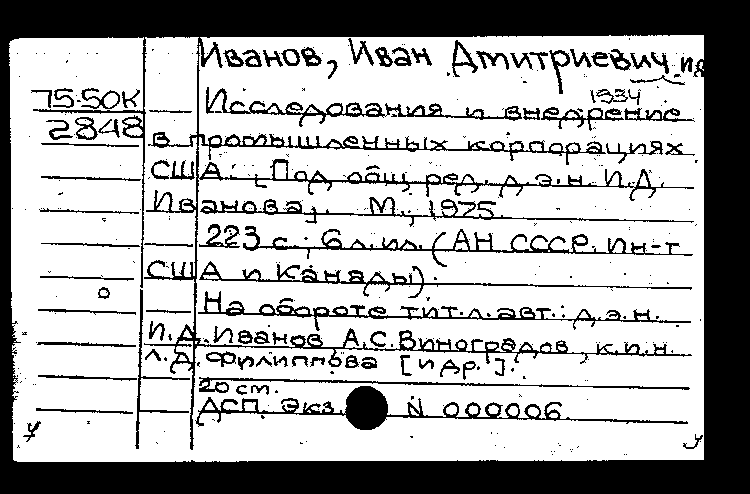 Иванов, Иван Дмитриевич и др
1934
75-50к Исследования и внедрение
2848 в промышленных корпорациях
США: [Под общ. ред. д.э.н. И.Д.
Иванова]. М., 1975.
223 с.; 6 л. ил. (АН СССР. Ин-т
США и Канады).
На обороте тит. л. авт.: д.э.н.
И.Д. Иванов А.С. Виноградов, к.и.н.
Л.Д. Филиппова [и др.].
20 см.
ДСП. Экз. N 000006.